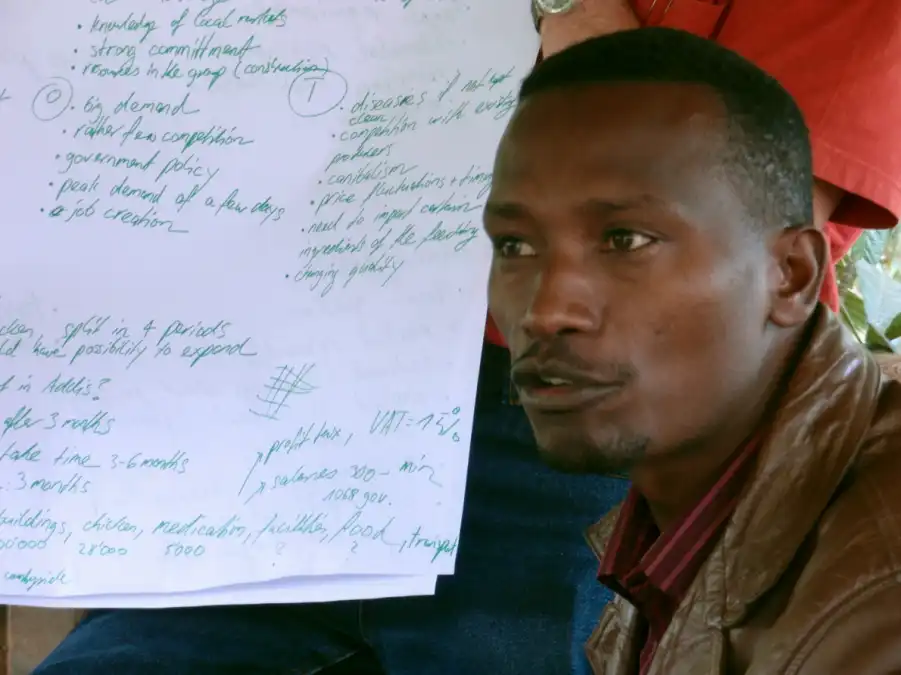 • knowledge of local markets
• strong committment
• resources in the group (construction)
O
• big demand
• rather few competition
• government policy
• peak demand of a few days
• job creation
T
• diseases if not kept
clean
• competition with existing
producers
• canibalism
• price fluctuations + timing
• need to import certain
ingredients of the feeding
• changing quality
split in 4 periods
have possibility to expand
in Addis?
after 3 months
take time 3-6 months
3 months
profit tax, VAT = 15%
salaries 300 - min
1068 gov.
buildings, chicken, medication, facilities, food, transport
28'000 5000 ? ?
countryside